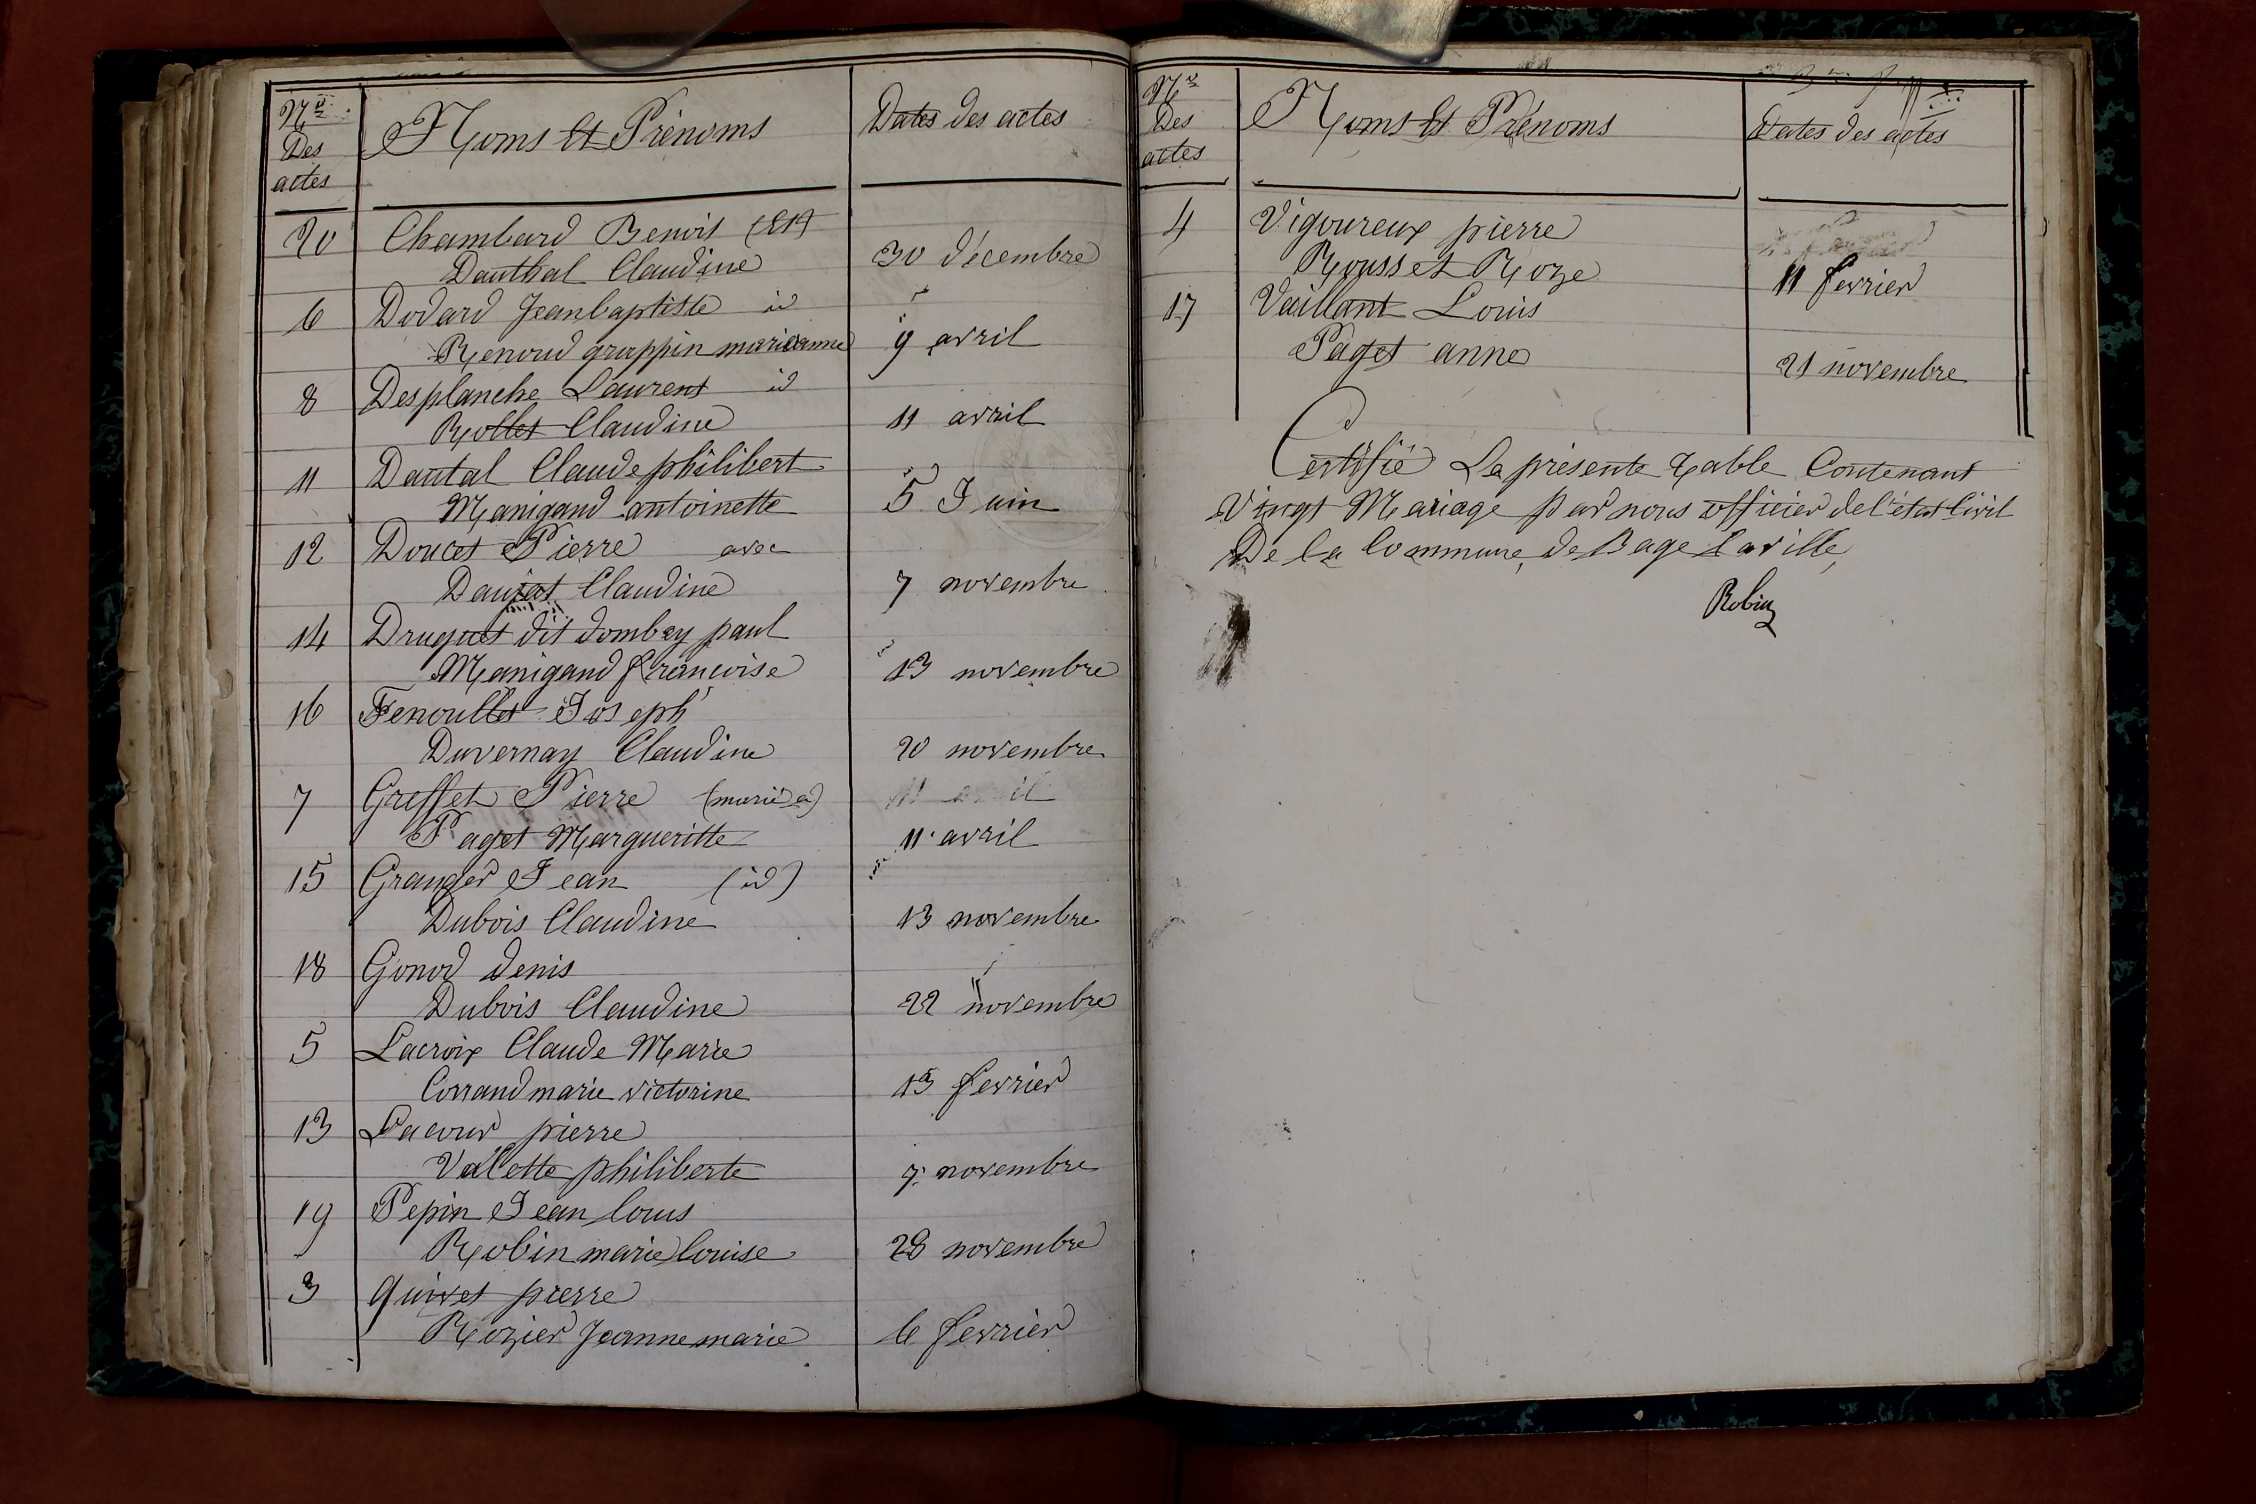 Nos
Des
actes
Noms Et Prénoms
Dates des actes
20 Chambard Benois (Et)
Dauthal Claudine 30 décembre
6 Dodard Jeanbaptiste id
Renoud grappin marieanne 9 avril
8 Desplanche Laurent id
Rollet Claudine 11 avril
11 Dautal Claude philibert
Manigand antoinette 5 Juin
12 Doucet Pierre avec
Claudine 7 novembre
14 Druguet dit dombey paul
Manigand francoise 13 novembre
16 Fenoullet Joseph
Duvernay Claudine 20 novembre
7 Greffet Pierre (marié a)
Paget Margueritte 11 avril
15 Granger Jean (id)
Dubois Claudine 13 novembre
18 Gonod denis
Dubois Claudine 22 novembre
5 Lacroix Claude Marie
Corrand marie victorine 13 fevrier
13 Lacour pierre
Valette philiberte 7 novembre
19 Pepin Jean louis
Robin marie louise 28 novembre
3 quivet pierre
Rozier Jeanne marie 6 fevrier
Nos
Des
actes
Noms Et Prénoms
Dates des actes
4 Vigoureux pierre
Rousset Roze 11 fevrier
17 Vaillant Louis
Paget anne 21 novembre
Certifié La présente table Contenant
Vingt Mariage par nous officier de l'état Civil
De la Commune de Bage Laville,
Robin